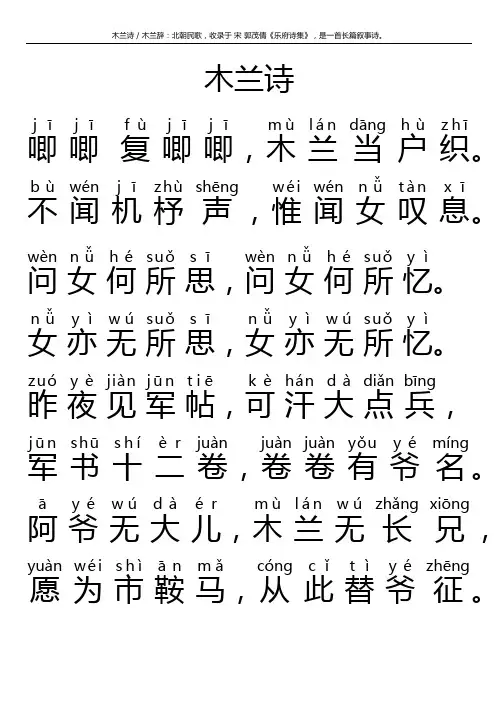 木兰诗 / 木兰辞：北朝民歌，收录于 宋 郭茂倩《乐府诗集》，是一首长篇叙事诗。
木兰诗
jī jī fù jī jī mù lán dāng hù zhī
唧唧 复唧唧，木兰当户织。
bù wén jī zhù shēng wéi wén nǚ tàn xī
不闻机杼声，惟闻女叹息。
wèn nǚ hé suǒ sī wèn nǚ hé suǒ yì
问女何所思，问女何所忆。
nǚ yì wú suǒ sī nǚ yì wú suǒ yì
女亦无所思，女亦无所忆。
zuó yè jiàn jūn tiē kè hán dà diǎn bīng
昨夜见军帖，可汗大点兵，
jūn shū shí èr juàn juàn juàn yǒu yé míng
军书十二卷，卷卷有爷名。
ā yé wú dà ér mù lán wú zhǎng xiōng
阿爷无大儿，木兰无长兄，
yuàn wéi shì ān mǎ cóng cǐ tì yé zhēng
愿为市鞍马，从此替爷征。